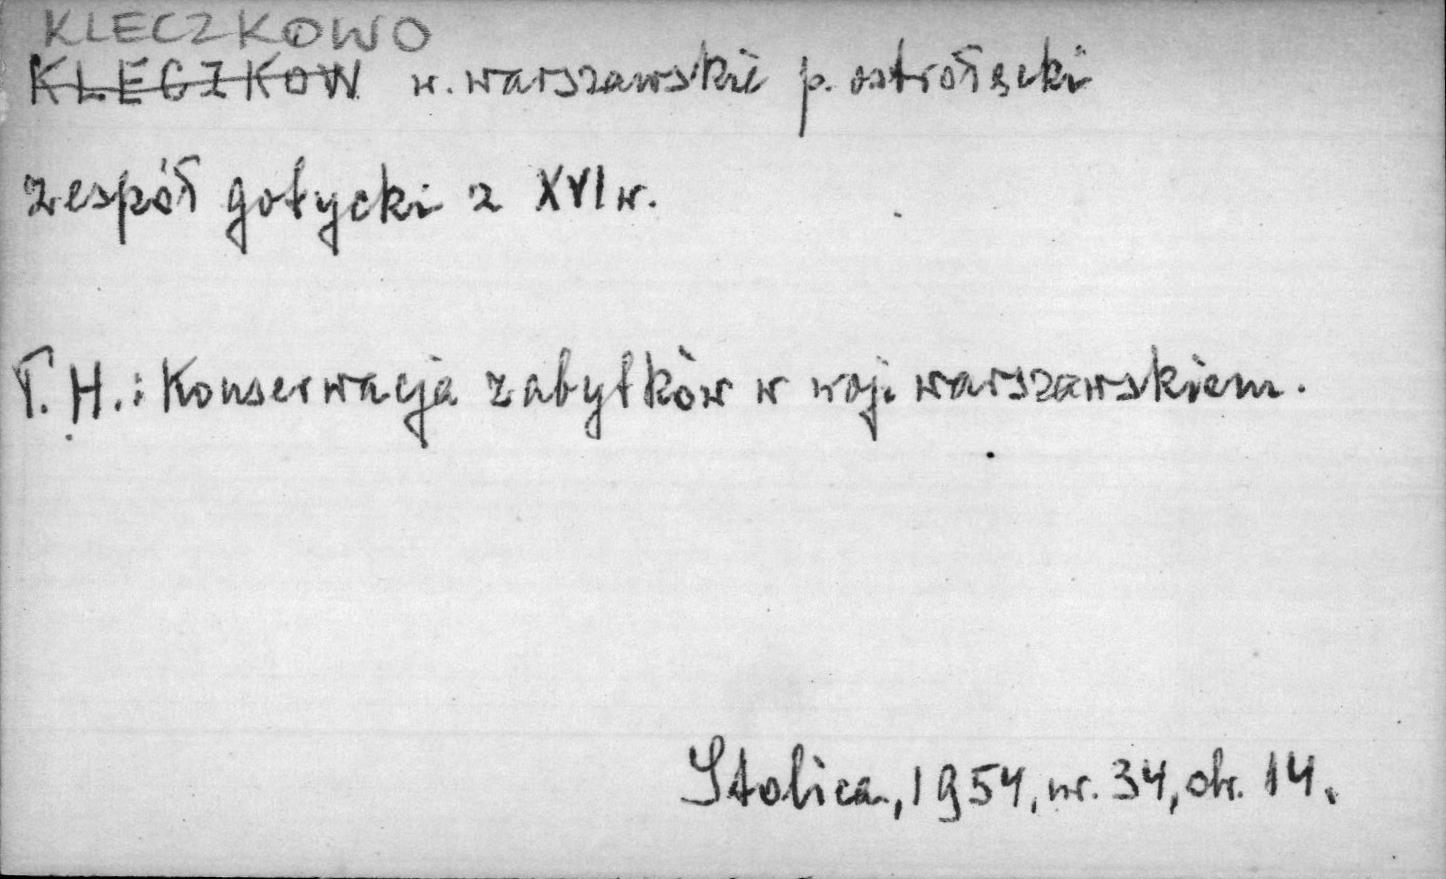 KLECZKOWO
KLECZKOW w. warszawskie p. ostrołęcki
zespół gotycki z XVI w.
T. H.: Konserwacja zabytków w woj. warszawskiem.
Stolica, 1954, nr. 34, str. 14.